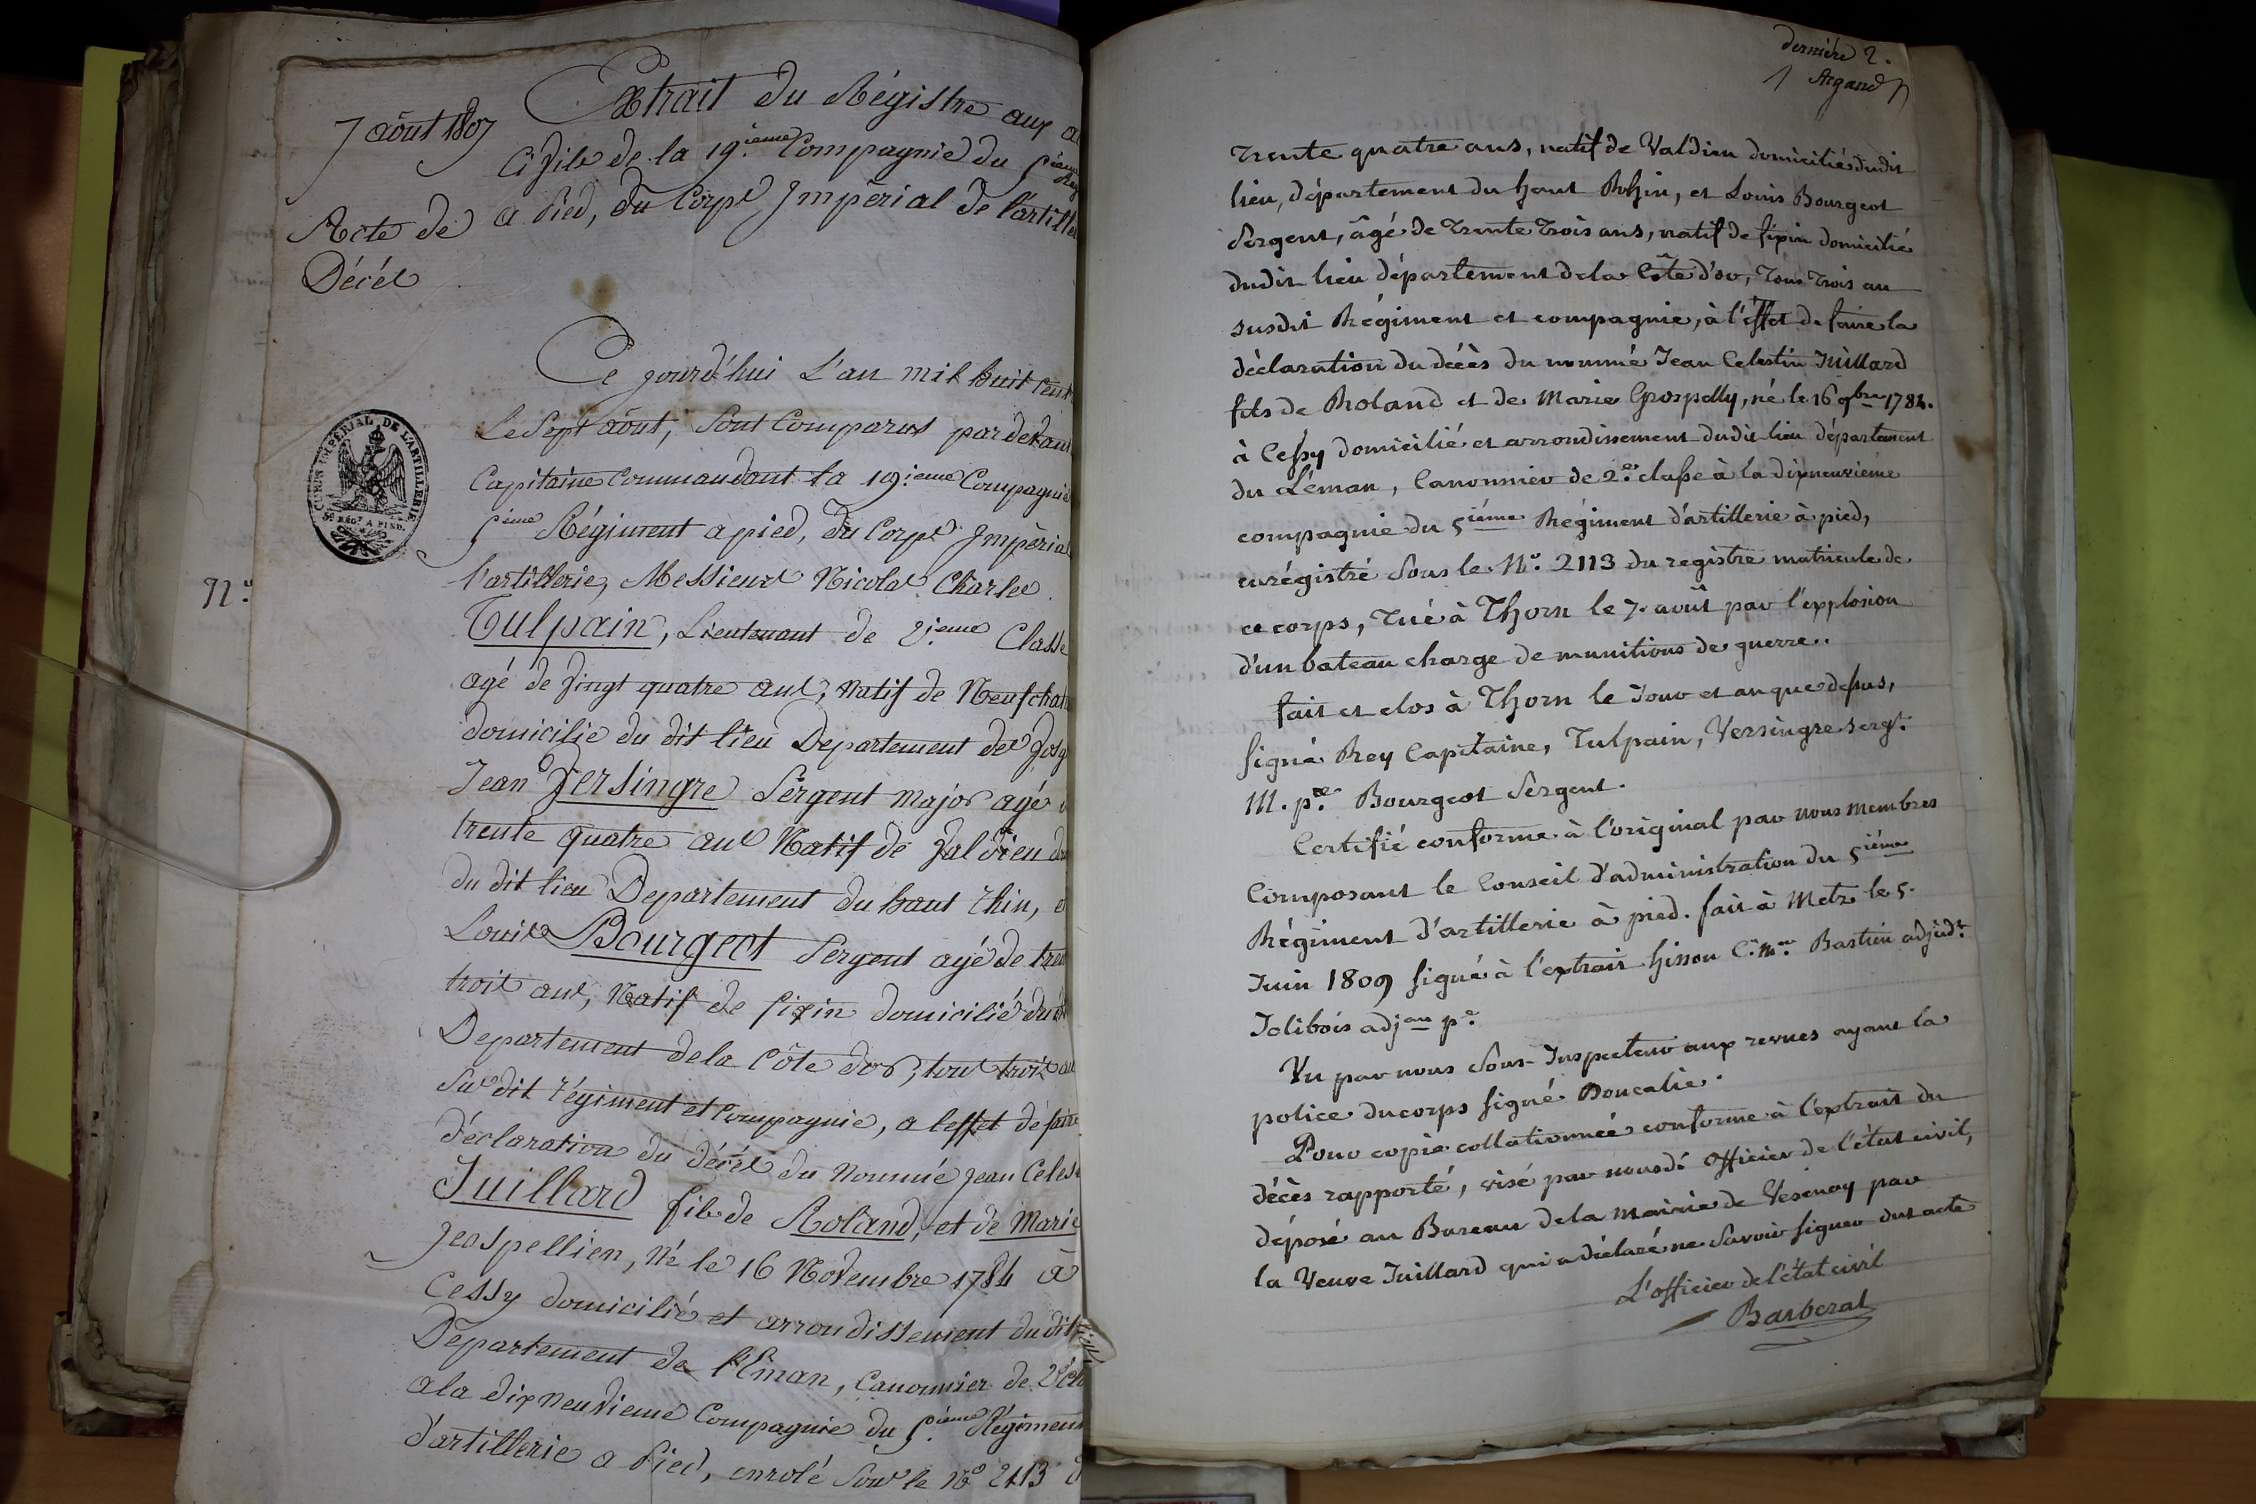 7 août 1807
Acte de
Décés
Extrait du Régistre aux a
Civile de la 19.ieme Compagnie du 5ieme Reg
a Pied, du Corps Impérial de l'artille
Ce jourd'hui L'an mil huit cent
Le Sept août, Sont Comparus pardevant
Capitaine Commandant la 19.ieme Compagnie
5.ieme Régiment a pied, du Corps Impérial
l'artillerie, Messieurs Nicolas Charles
Tulpain, Lieutenant de 2.ieme Classe
agé de Vingt quatre ans, Natif de Neufchat
domicilie du dit lieu Departement des Vosg
Jean Versingre Sergent Major agé d
trente quatre ans Natif de Valdieu do
du dit lieu Departement du haut Rhin, e
Louis Bourgeot Sergent agé de tren
trois ans, Natif de fixin domicilié du d
Departement de la Côte dor, tous trois au
Susdit régiment et Compagnie, a leffet de faire
déclaration du décés du Nommé Jean Celes
Juillard fils de Roland, et de Marie
Jospellien, Né le 16 Novembre 1784 à
Cessy domicilié et arrondissement du dit lieu
Departement de l'Eman, Canonnier de 2e cl
a la dix neuvieme Compagnie du 5.ieme Régiment
d'artillerie a Pied, enrolé Sous le No 2113 d
CORPS IMPERIAL DE L'ARTILLERIE
5e REGt A PIED.
N.o
dernière 2.
Argand
trente quatre ans, natif de Valdieu domicilié dudit
lieu, département du haut Rhin, et Louis Bourgeot
Sergent, âgé de trente trois ans, natif de fixin domicilié
dudit lieu département de la Côte d'or, tous trois au
susdit Régiment et compagnie, à l'effet de faire la
déclaration du décès du nommé Jean Celestin Juillard
fils de Roland et de Marie Grospelly, né le 16 9bre 1784.
à Cessy domicilié et arrondissement dudit lieu département
du Léman, Canonnier de 2.e classe à la dixneuvième
compagnie du 5ième Régiment d'artillerie à pied,
enrégistré Sous le No. 2113 du registre matricule de
ce corps, tué à Thorn le 7. août par l'explosion
d'un bateau charge de munitions de guerre..
fait et clos à Thorn le Jour et an que dessus,
Signé Rey Capitaine, Tulpain, Versingre Sergt.
M. Bourgeot Sergent.
Certifié conforme à l'original par nous membres
Composant le Conseil d'administration du 5ième
Régiment d'artillerie à pied. fait à Metz le 5.
Juin 1809 Signé à l'extrait Bastien adjudt.
Jolibois
Vu par nous Sous-Inspecteur aux revues ayant la
police du corps Signé
Pour copie collationnée conforme à l'extrait du
décès rapporté, visé par nous dt officier de l'état civil,
déposé au Bureau de la mairie de Vesenay par
la Veuve Juillard qui a déclaré ne Savoir Signer dut acte
L'officier de l'état civil
Barberat